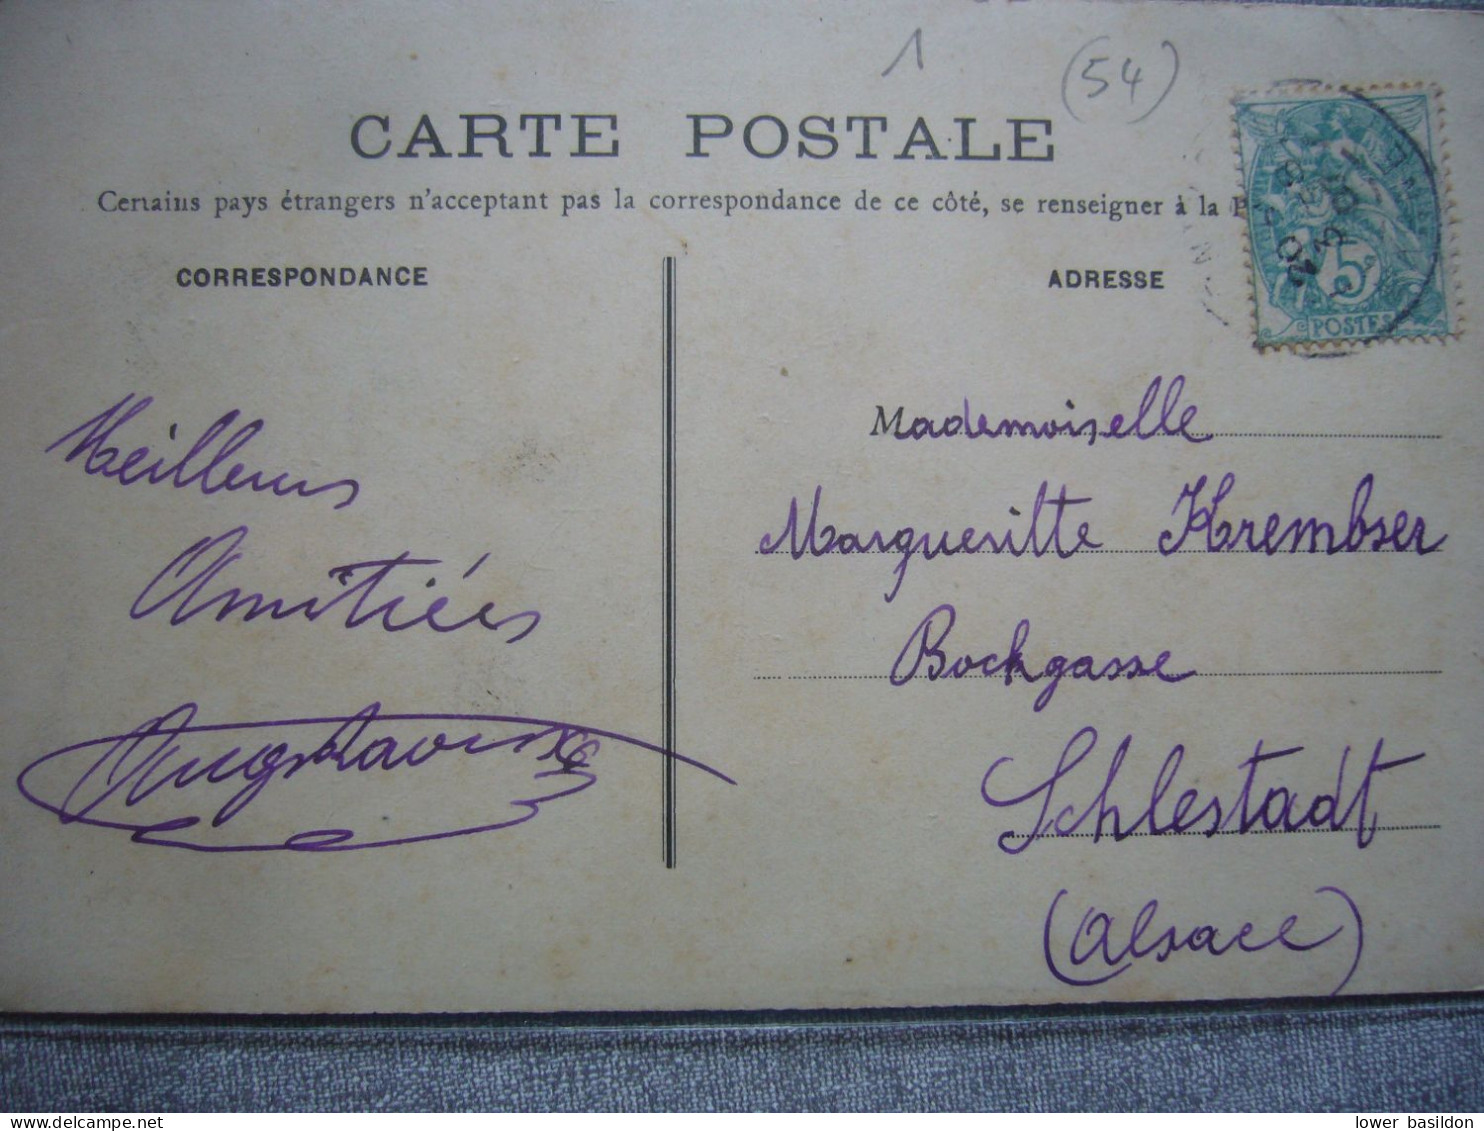 1
(54)
CARTE POSTALE
Certains pays étrangers n'acceptant pas la correspondance de ce côté, se renseigner à la P
CORRESPONDANCE
ADRESSE
5c
POSTES
Meilleures
Amitiés
Mademoiselle
Margueritte Krembser
Bockgasse
Schlestadt
(Alsace)
www.delcampe.net
lower basildon